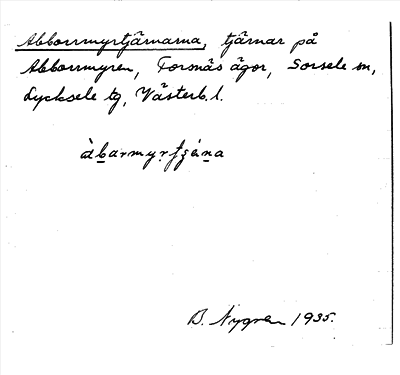 Abborrmyrtjärnarna, tjärnar på
Abborrmyren, Forsnäs ägor, Sorsele sn,
Lycksele tg, Västerb. l.
àbarmyrtʃéna
B. Nygren 1935.